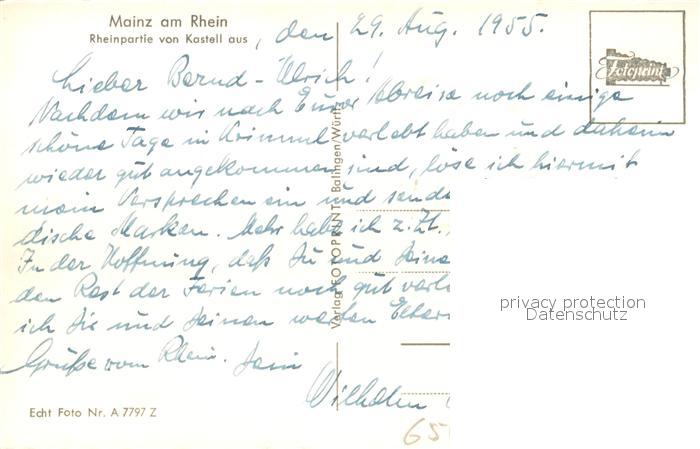 Mainz am Rhein
Rheinpartie von Kastell aus
, den 29. Aug. 1955.
Lieber Bernd-Ulrich!
Nachdem wir nach Eurer Abreise noch einige
schöne Tage in Krimml verlebt haben und daheim
wieder gut angekommen sind, löse ich hiermit
mein Versprechen ein und sende
dische Marken. Mehr habe ich z. Zt.
In der Hoffnung, daß Du und Deine
den Rest der Ferien noch gut verle
ich Dir und Deinen werten Eltern
Grüße vom Rhein. Dein
Wilhelm
Echt Foto Nr. A 7797 Z
65
Verlag FOTOPRINT Balingen/Württ
Fotoprint
privacy protection
Datenschutz